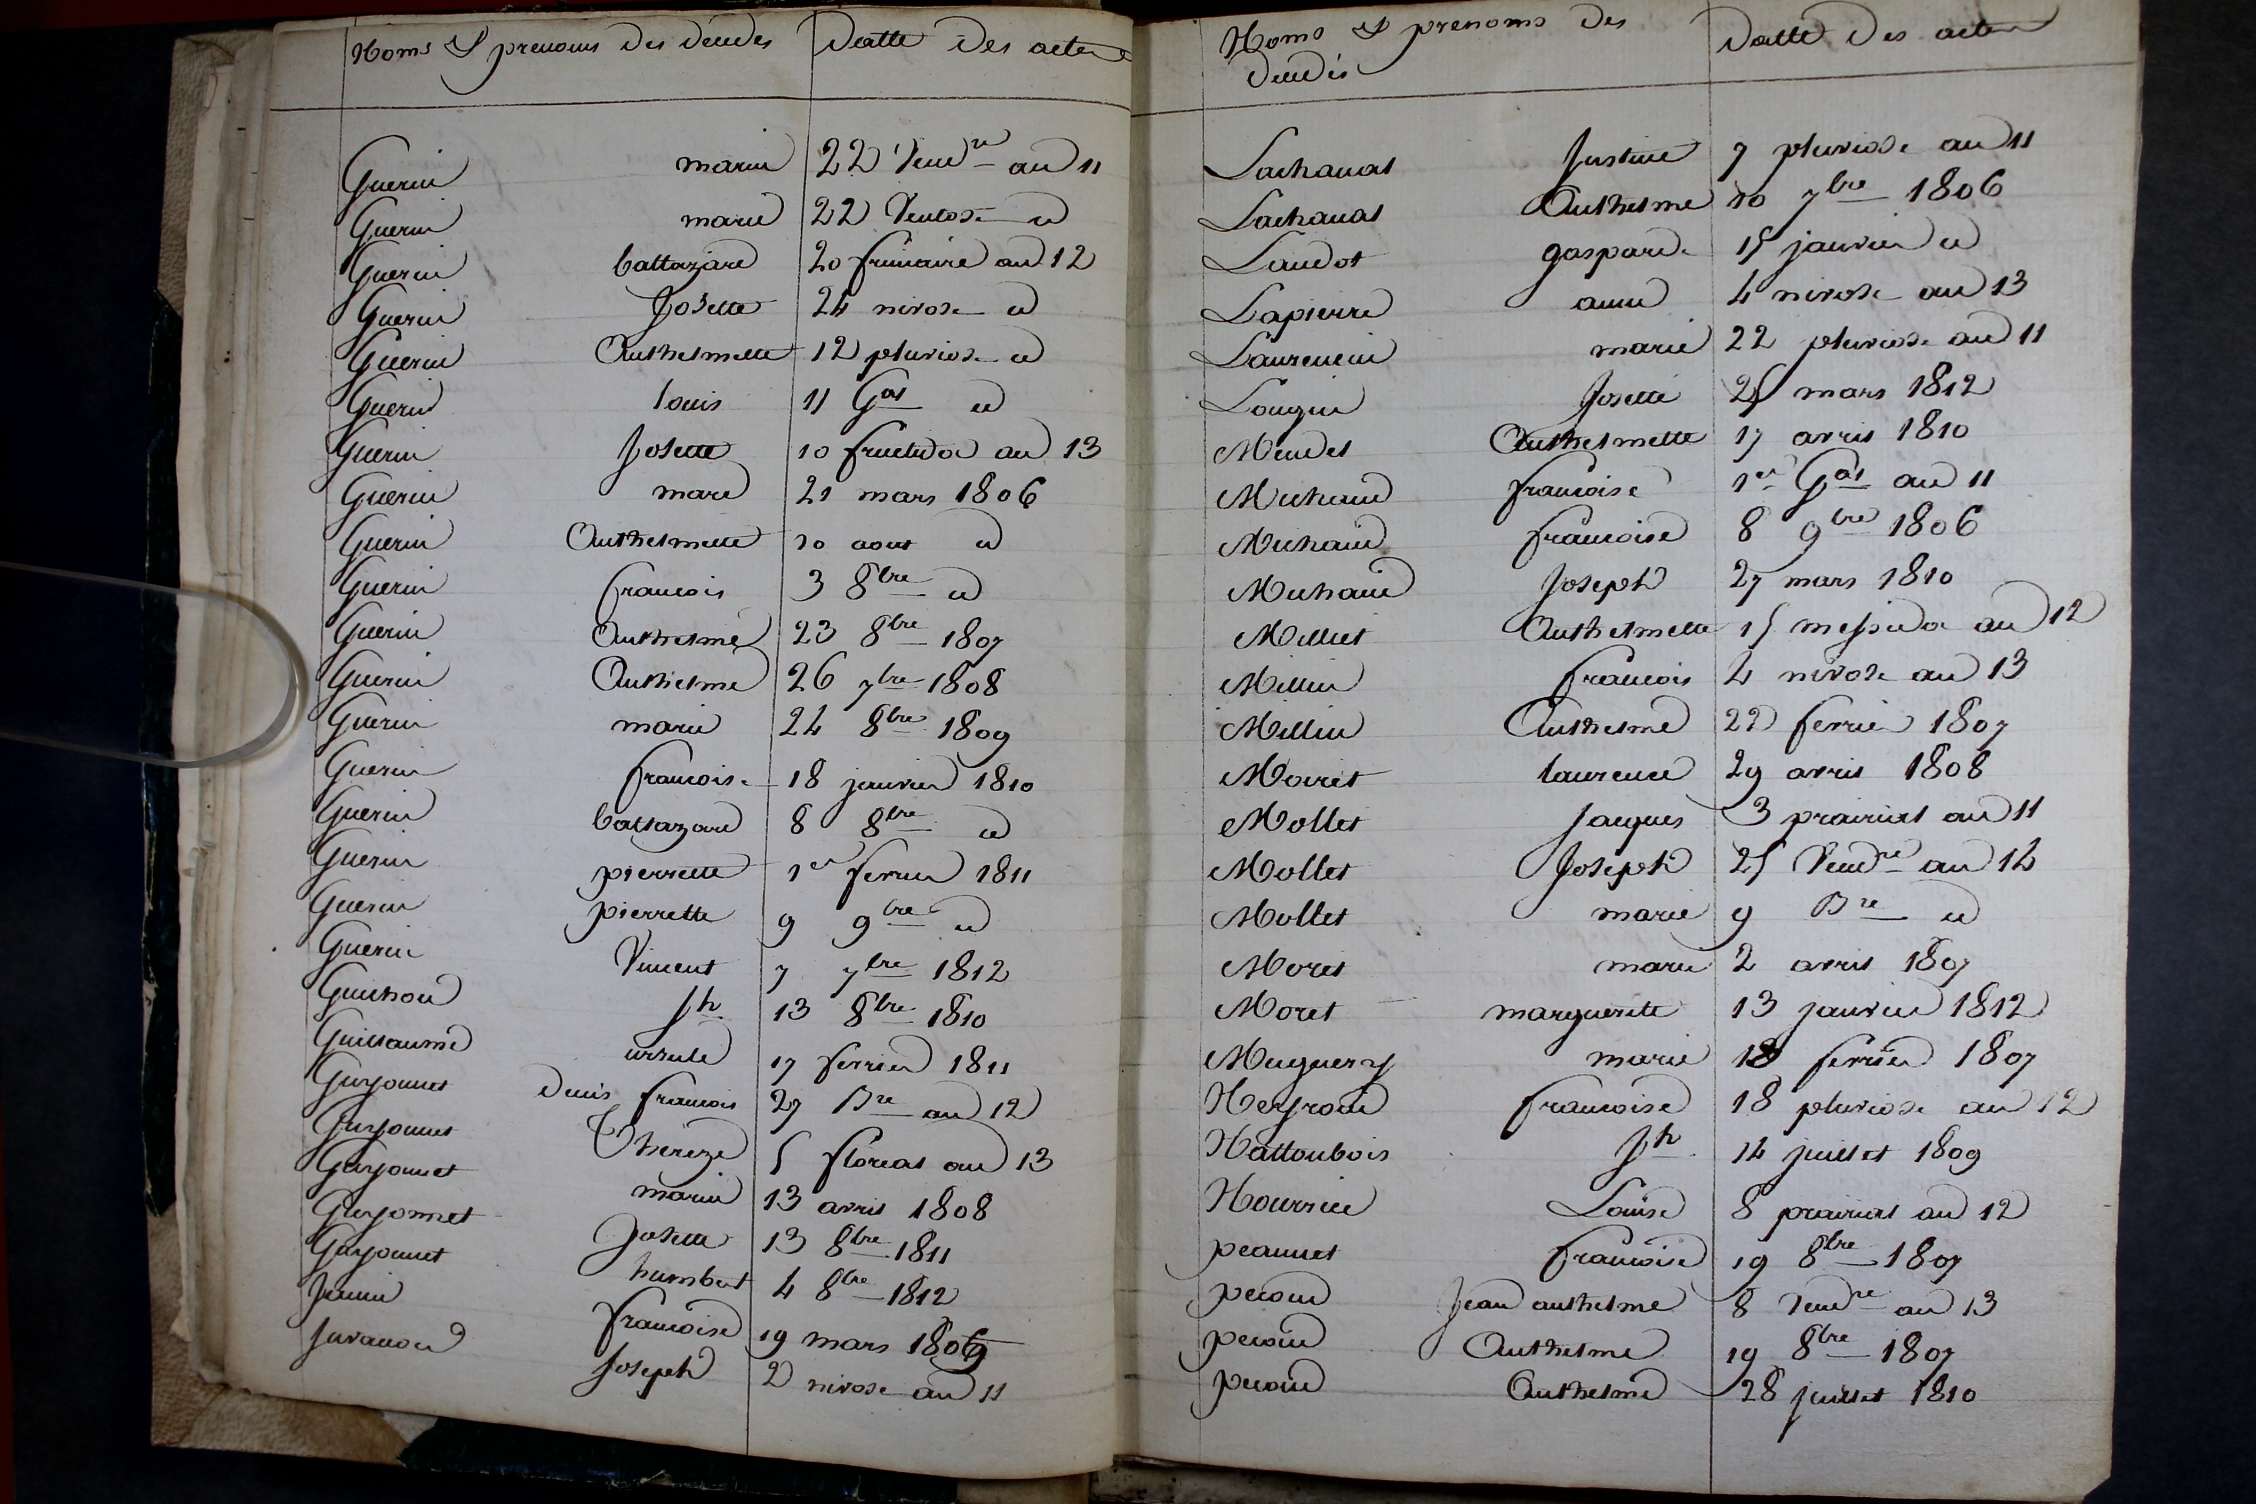 Noms & prenoms des décédés Datte des actes
Guerin marin 22 Vend.re an 11
Guerin marie 22 Ventose id
Guerin baltazard 20 frimaire an 12
Guerin Josette 24 nivose id
Guerin Anthelmette 12 pluviose id
Guerin louis 11 G.al id
Guerin Josette 10 fructidor an 13
Guerin marc 21 mars 1806
Guerin Anthelmette 10 aout id
Guerin francois 3 8bre id
Guerin Anthelme 23 8bre 1807
Guerin Anthelme 26 7bre 1808
Guerin marie 24 8bre 1809
Guerin francoise 18 janvier 1810
Guerin baltazard 8 8bre id
Guerin pierrette 1er fevrier 1811
Guerin pierrette 9 9bre id
Guerin Vincent 7 7bre 1812
Guichon Jh 13 8bre 1810
Guillaume ursule 17 fevrier 1811
Guyonnet Denis francois 27 B.re an 12
Guyonnet Thereze 5 floreal an 13
Guyonnet marie 13 avril 1808
Guyonnet Josette 13 8bre 1811
Guyonnet humbert 4 8bre 1812
Janin francoise 19 mars 1809
Juvanon Joseph 2 nivose an 11
Noms & prenoms des Datte des actes
décédés
Lachanal Justine 7 pluviose an 11
Lachanal Anthelme 10 7bre 1806
Landot gaspard 15 janvier id
Lapierre anne 4 nivose an 13
Laurencin marie 22 pluviose an 11
Longin Josette 25 mars 1812
Mendel Anthelmette 17 avril 1810
Michaud francoise 1er G.al an 11
Michaud francoise 8 9bre 1806
Michaud Joseph 27 mars 1810
Milliet Anthelmette 15 messidor an 12
Millin francois 4 nivose an 13
Millin Anthelme 22 fevrier 1807
Moiret laurence 29 avril 1808
Mollet Jacques 3 prairial an 11
Mollet Joseph 25 Vend.re an 14
Mollet marie 9 B.re id
Moret marie 2 avril 1807
Moret marguerite 13 janvier 1812
Muguery marie 18 fevrier 1807
Neyroud francoise 18 pluviose an 12
Nattoubois Jh 14 juillet 1809
Nourrin Louise 8 prairial an 12
peannet francoise 19 8bre 1807
pecoud Jean anthelme 8 Vend.re an 13
pecoud Anthelme 19 8bre 1807
pecoud Anthelme 28 juillet 1810